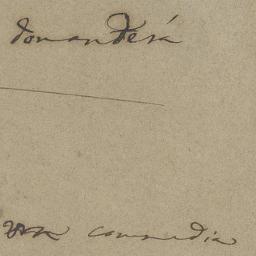 domanderá
una commedia